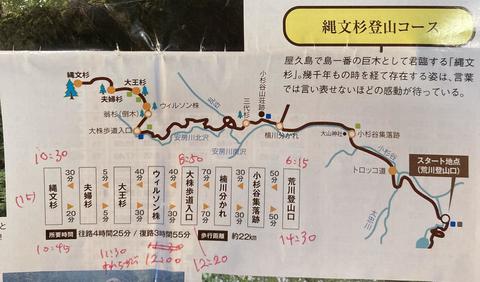 縄文杉登山コース
屋久島で島一番の巨木として君臨する「縄文
杉」。幾千年もの時を経て存在する姿は、言葉
では言い表せないほどの感動が待っている。
縄文杉
大王杉
夫婦杉
翁杉(倒木)
ウィルソン株
大株歩道入口
安房川北沢
安房川南沢
三代杉
小杉谷山荘跡
楠川分かれ
大山神社
小杉谷集落跡
小杉谷
トロッコ道
太田川
スタート地点
(荒川登山口)
10:30
8:50
6:15
(15)
縄文杉
30分
40分
夫婦杉
5分
5分
大王杉
30分
40分
ウィルソン株
20分
30分
大株歩道入口
70分
70分
楠川分かれ
20分
小杉谷集落跡
50分
荒川登山口
所要時間
往路4時間25分/復路3時間55分
歩行距離
約22km
10:45
11:30
12:00
12:20
14:30